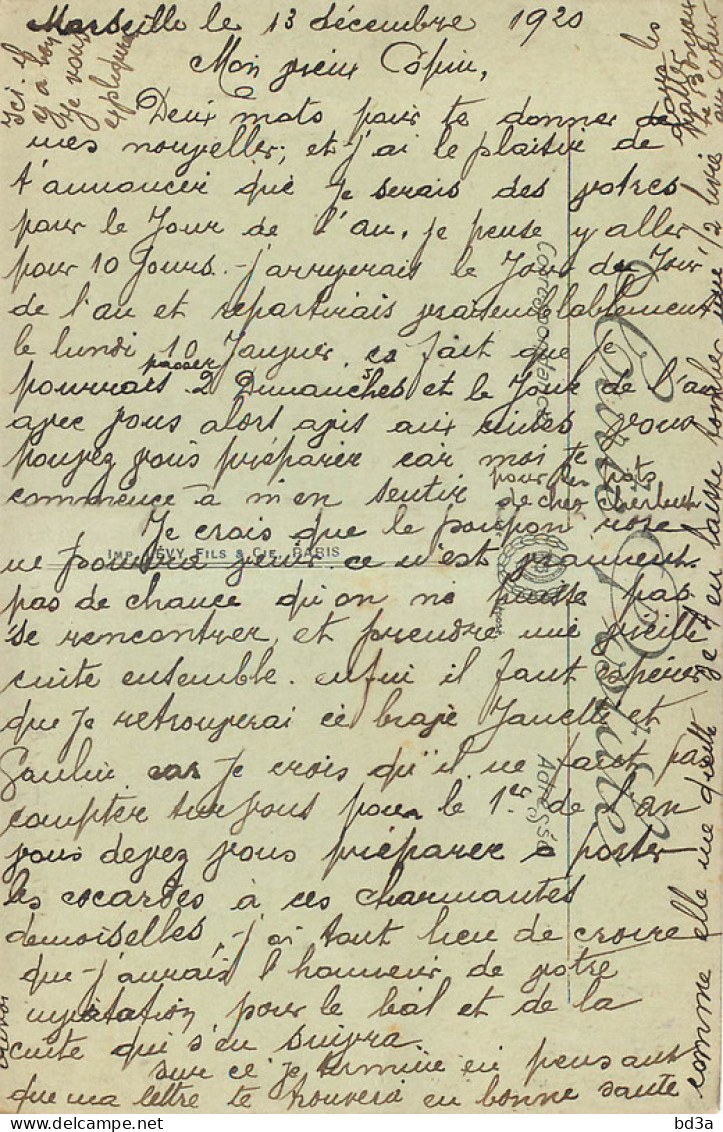 Marseille le 13 décembre 1920
Mon vieux Copin,
Deux mots pour te donner de
mes nouvelles, et j'ai le plaisir de
t'annoncer que je serais des votres
pour le Jour de l'an, je pense y aller
pour 10 Jours. j'arriverais le Jour du Jour
de l'an et repartirais vraisemblablement
le lundi 10 Janvier, ce fait que je
pourrais passer 2 Dimanches et le Jour de l'an
avec vous alors avis aux cuites vous
pouvez vous préparer car moi je
commence à m'en sentir
pour un pote
de chez
Je crois que le poupon rose
ne pourra venir. ce n'est vraiment
pas de chance qu'on ne puisse pas
se rencontrer, et prendre une vieille
cuite ensemble. enfin il faut espérer
que je retrouverai ce brave Janelle et
Gaulin car je crois qu'il ne faut pas
compter sur vous pour le 1er de l'an
vous devez vous préparer à porter
les cocardes à ces charmantes
demoiselles, j'ai tout lieu de croire
que j'aurais l'honneur de votre
invitation pour le bal et de la
cuite qui s'en suivra.
sur ce je termine en pensant
que ma lettre te trouvera en bonne santé
comme elle me quitte
Ici il
y a
je vous
expliquer
Carte Postale
Correspondance
Adresse
IMP. LÉVY FILS & CIE, PARIS
bd3a